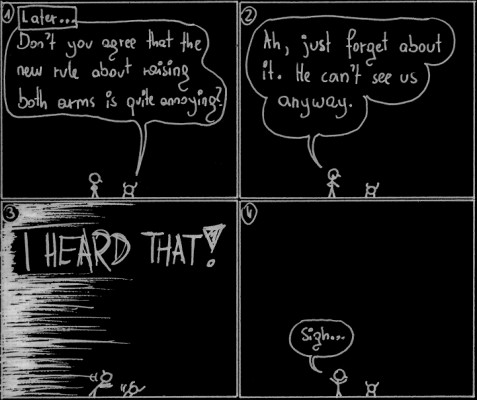 1
Later...
Don't you agree that the
new rule about raising
both arms is quite annoying?
2
Ah, just forget about
it. He can't see us
anyway.
3
I HEARD THAT!
4
Sigh...